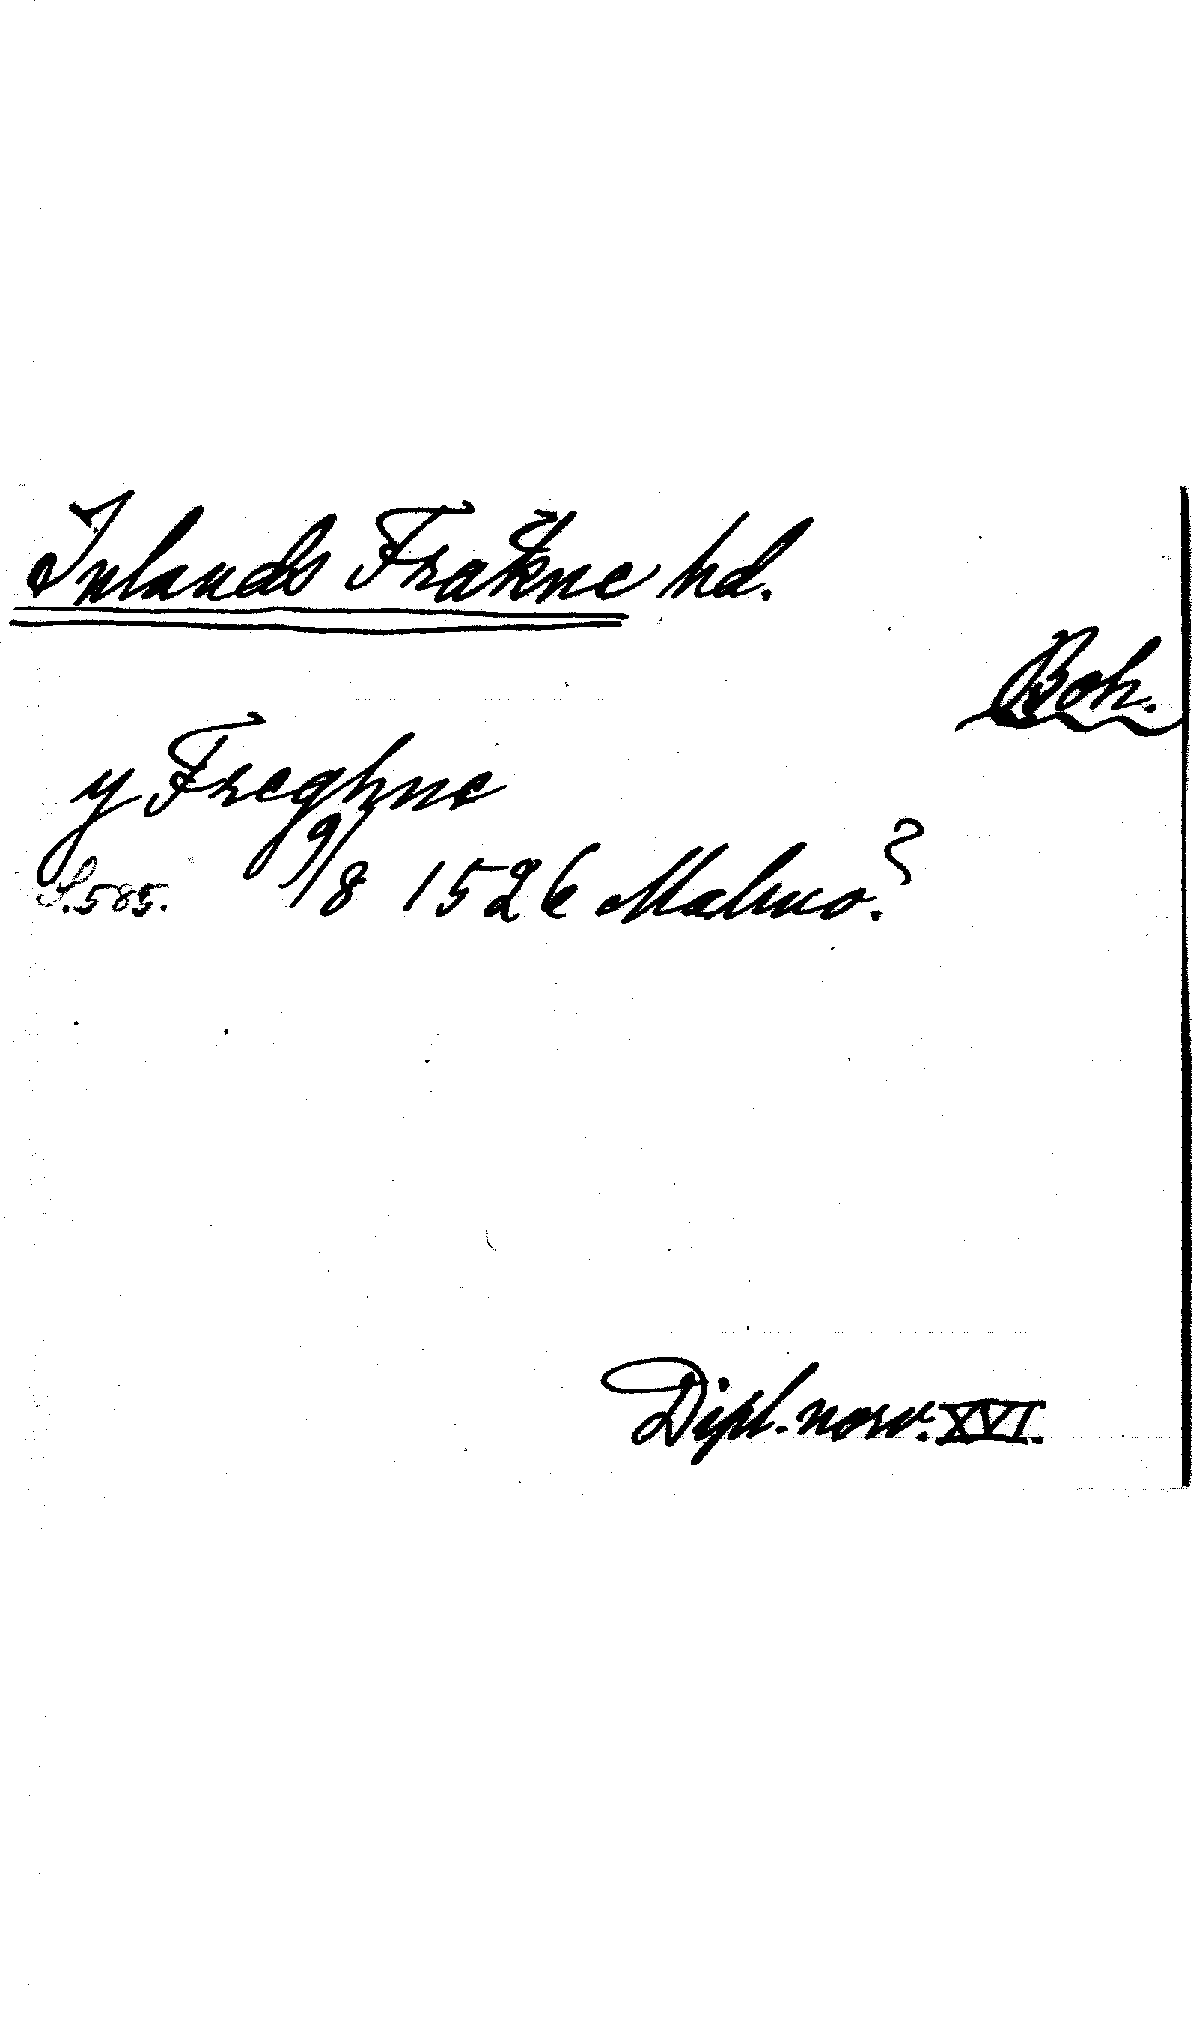 Inlands Fräkne hd.
Boh.
y Freghne
S. 585. 9/8 1526 Malmö.?
Dipl. norv. XVI.